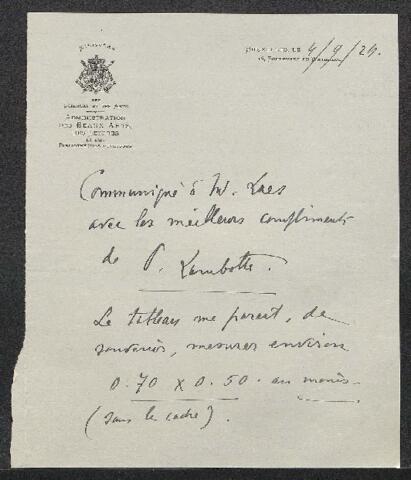 MINISTÈRE
DES
SCIENCES ET DES ARTS
ADMINISTRATION
DES BEAUX-ARTS,
DES LETTRES
ET DES
BRUXELLES, LE 4/9/24.
Communiqué à M. Laes
avec les meilleurs compliments
de P. Lambotte.
Le tableau me parait, de
souvenir, mesurer environ
0.70 x 0.50. au moins
(sans le cadre).